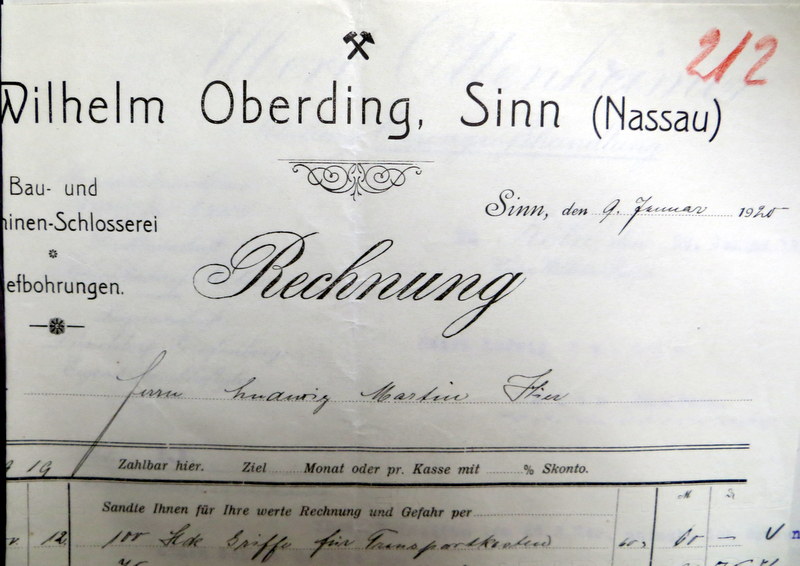 212
Wilhelm Oberding, Sinn (Nassau)
Bau- und
hinen-Schlosserei
efbohrungen.
Sinn, den 9. Januar 1920
Rechnung
Herrn Ludwig Martin Hier
19 Zahlbar hier. Ziel Monat oder pr. Kasse mit % Skonto.
Sandte Ihnen für Ihre werte Rechnung und Gefahr per
12 100 Stck Griffe für Transportkasten 60 60 —